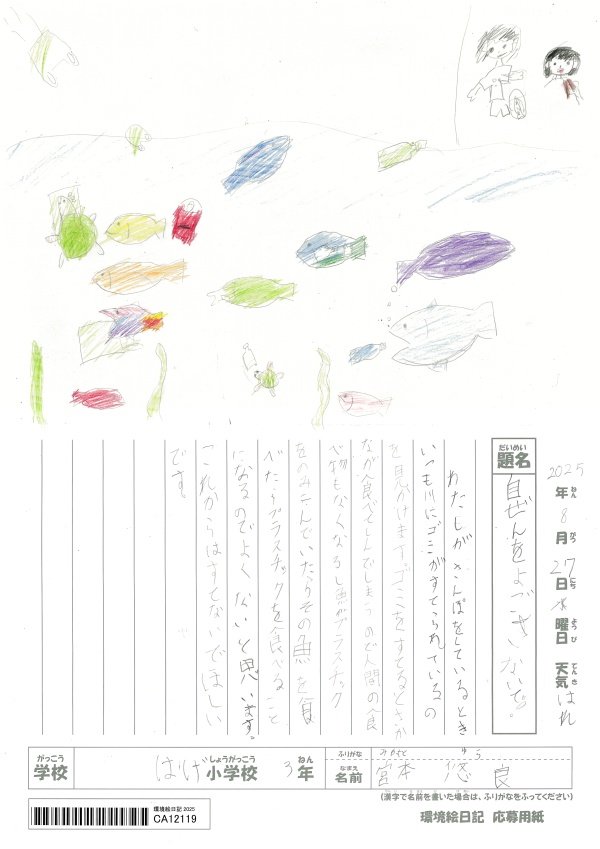 2025年ねん8月がつ27日にち水曜日ようび天気てんきはれ
だいめい
題名
自ぜんをよごさないで。
わたしがさんぽをしているとき
いつも川にゴミがすてられているの
を見かけますゴミをすてるとさか
なが食べてしんでしまうので人間の食
べ物もなくなるし魚がプラスチック
をのみこんでいたらその魚を食
べたらプラスチックを食べること
になるのでよくないと思います。
これからはすてないでほしい
です。
がっこう
学校
はげ小学校 3年
しょうがっこう ねん
ふりがな みやもと
なまえ
名前 宮本 悠良
(漢字で名前を書いた場合は、ふりがなをふってください)
環境絵日記 2025
CA12119
環境絵日記 応募用紙